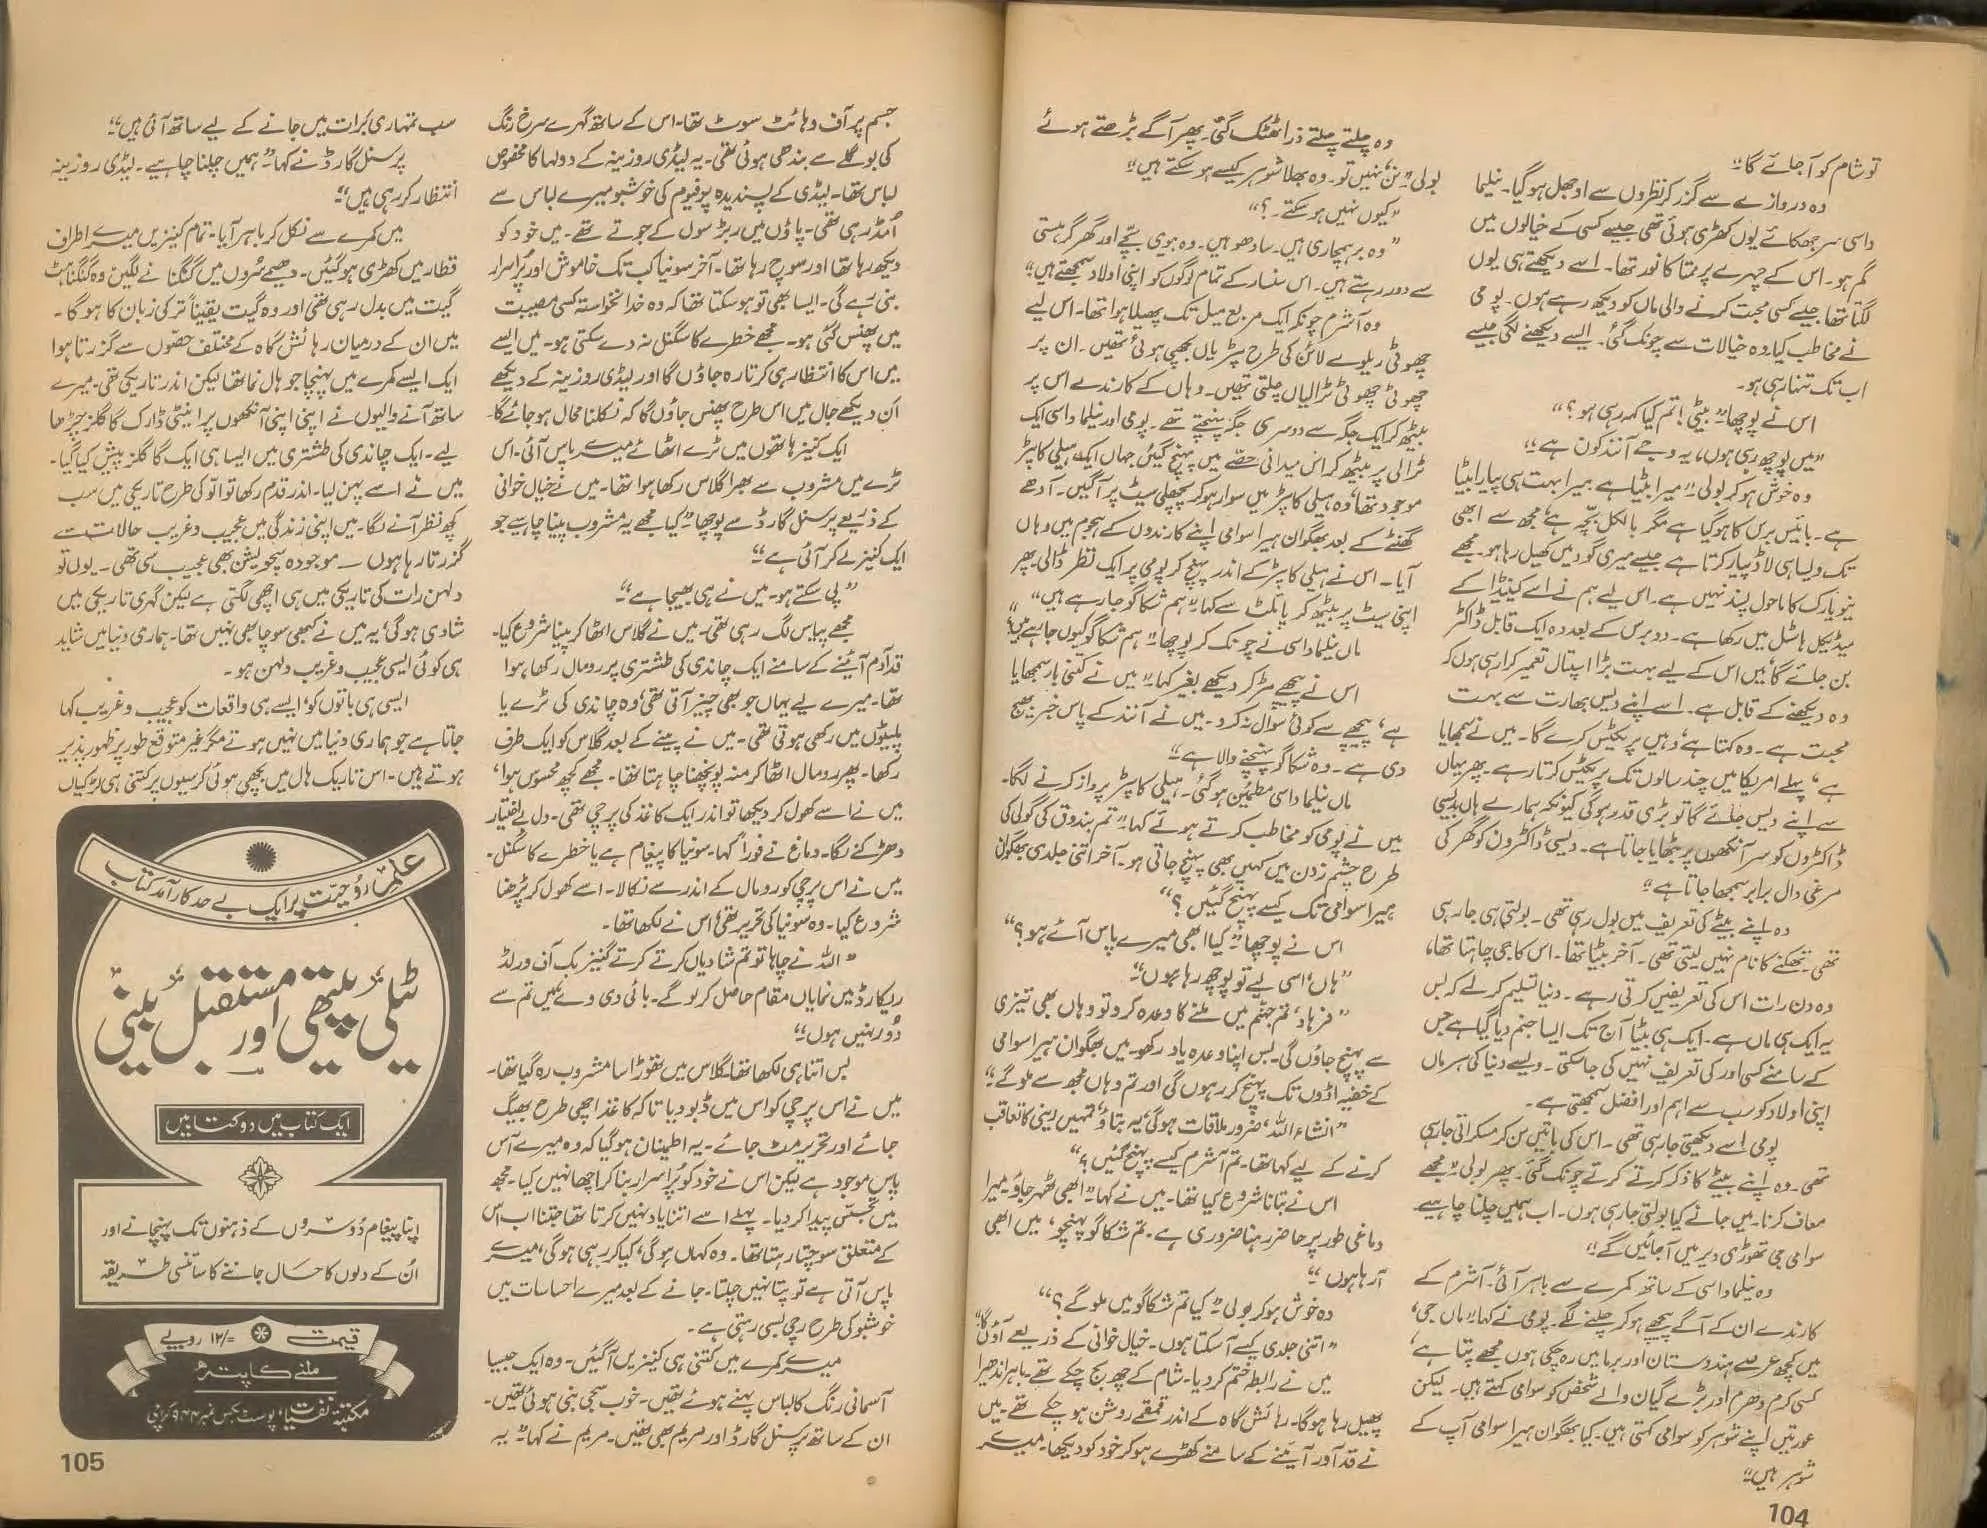 تو شام کو آ جائے گا۔"
وہ دروازے سے گزر کر نظروں سے اوجھل ہو گیا۔ نیلما
داسی سر جھکائے یوں کھڑی ہوئی تھی جیسے کسی کے خیالوں میں
گم ہو۔ اس کے چہرے پر ممتا کا نور تھا۔ اسے دیکھتے ہی یوں
لگتا تھا جیسے کسی محبت کرنے والی ماں کو دیکھ رہے ہوں۔ پومی
نے مخاطب کیا، وہ خیالات سے چونک گئی۔ ایسے دیکھنے لگی جیسے
اب تک تنہا رہی ہو۔
اس نے پوچھا "بیٹی! تم کیا کہہ رہی ہو؟"
"میں پوچھ رہی ہوں، یہ وجے آنند کون ہے؟"
وہ خوش ہو کر بولی "میرا بیٹا ہے میرا بہت ہی پیارا بیٹا
ہے۔ بائیس برس کا ہو گیا ہے مگر بالکل بچہ ہے، مجھ سے ابھی
تک ویسا ہی لاڈ پیار کرتا ہے جیسے میری گود میں کھیل رہا ہو۔ مجھے
نیویارک کا ماحول پسند نہیں ہے۔ اس لیے ہم نے اسے کینیڈا کے
میڈیکل ہاسٹل میں رکھا ہے۔ دو برس کے بعد وہ ایک قابل ڈاکٹر
بن جائے گا، میں اس کے لیے بہت بڑا اسپتال تعمیر کرا رہی ہوں کہ
وہ دیکھنے کے قابل ہے۔ اسے اپنے دیس بھارت سے بہت
محبت ہے۔ وہ کہتا ہے، وہیں پریکٹس کرے گا۔ میں نے سمجھایا
ہے، پہلے امریکا میں چند سالوں تک پریکٹس کرتا رہے۔ پھر یہاں
سے اپنے دیس جائے گا تو بڑی قدر ہو گی کیونکہ ہمارے ہاں بدیسی
ڈاکٹروں کو سر آنکھوں پر بٹھایا جاتا ہے۔ دیسی ڈاکٹروں کو گھر کی
مرغی دال برابر سمجھا جاتا ہے۔"
وہ اپنے بیٹے کی تعریف میں بول رہی تھی۔ بولتی ہی جا رہی
تھی۔ تھکنے کا نام نہیں لیتی تھی۔ آخر بیٹا تھا۔ اس کا جی چاہتا تھا،
وہ دن رات اس کی تعریفیں کرتی رہے۔ دنیا تسلیم کر لے کہ بس
یہ ایک ہی ماں ہے۔ ایک ہی بیٹا آج تک ایسا جنم دیا گیا ہے جس
کے سامنے کسی اور کی تعریف نہیں کی جا سکتی۔ ویسے دنیا کی ہر ماں
اپنی اولاد کو سب سے اہم اور افضل سمجھتی ہے۔
پومی اسے دیکھتی جا رہی تھی۔ اس کی باتیں سن کر مسکراتی جا رہی
تھی۔ وہ اپنے بیٹے کا ذکر کرتے کرتے چونک گئی۔ پھر بولی "مجھے
معاف کرنا۔ میں جانے کیا بولتی جا رہی ہوں۔ اب ہمیں چلنا چاہیے
سوامی جی تھوڑی دیر میں آ جائیں گے۔"
وہ نیلما داسی کے ساتھ کمرے سے باہر آئی۔ آشرم کے
کارندے ان کے آگے پیچھے ہو کر چلنے لگے۔ پومی نے کہا "ماں جی،
میں کچھ عرصے ہندوستان اور برما میں رہ چکی ہوں مجھے پتا ہے،
کسی کرم دھرم اور بڑے گیان والے شخص کو سوامی کہتے ہیں۔ لیکن
عورتیں اپنے شوہر کو سوامی کہتی ہیں۔ کیا بھگوان ہیرا سوامی آپ کے
شوہر ہیں۔"
وہ چلتے چلتے ذرا ٹھٹک گئی۔ پھر آگے بڑھتے ہوئے
بولی "ن نہیں تو۔ وہ بھلا شوہر کیسے ہو سکتے ہیں۔"
"کیوں نہیں ہو سکتے۔؟"
"وہ برہمچاری ہیں۔ سادھو ہیں۔ وہ بیوی بچے اور گھر گرہستی
سے دور رہتے ہیں۔ اس سنسار کے تمام لوگوں کو اپنی اولاد سمجھتے ہیں"
وہ آشرم چونکہ ایک مربع میل تک پھیلا ہوا تھا۔ اس لیے
چھوٹی ریلوے لائن کی طرح پٹریاں بچھی ہوئی تھیں۔ ان پر
چھوٹی چھوٹی ٹرالیاں چلتی تھیں۔ وہاں کے کارندے اس پر
بیٹھ کر ایک جگہ سے دوسری جگہ پہنچتے تھے۔ پومی اور نیلما داسی ایک
ٹرالی پر بیٹھ کر اس میدانی حصے میں پہنچ گئیں جہاں ایک ہیلی کاپٹر
موجود تھا، وہ ہیلی کاپٹر میں سوار ہو کر پچھلی سیٹ پر آگئیں۔ آدھے
گھنٹے کے بعد بھگوان ہیرا سوامی اپنے کارندوں کے ہجوم میں وہاں
آیا۔ اس نے ہیلی کاپٹر کے اندر پہنچ کر پومی پر ایک نظر ڈالی پھر
اپنی سیٹ پر بیٹھ کر پائلٹ سے کہا "ہم شکاگو جا رہے ہیں"
ماں نیلما داسی نے چونک کر پوچھا "ہم شکاگو کیوں جا رہے ہیں"
اس نے پیچھے مڑ کر دیکھے بغیر کہا "میں نے کتنی بار سمجھایا
ہے، پیچھے سے کوئی سوال نہ کرو۔ میں نے آنند کے پاس خبر بھیج
دی ہے۔ وہ شکاگو پہنچنے والا ہے"
ماں نیلما داسی مطمئن ہو گئی۔ ہیلی کاپٹر پرواز کرنے لگا۔
میں نے پومی کو مخاطب کرتے ہوئے کہا "تم بندوق کی گولی کی
طرح چشم زدن میں کہیں بھی پہنچ جاتی ہو۔ آخر اتنی جلدی بھگوان
ہیرا سوامی تک کیسے پہنچ گئیں؟"
اس نے پوچھا "کیا ابھی میرے پاس آئے ہو؟"
"ہاں، اسی لیے تو پوچھ رہا ہوں"
"فرہاد، تم جہنم میں ملنے کا وعدہ کرو تو وہاں بھی تیزی
سے پہنچ جاؤں گی۔ بس اپنا وعدہ یاد رکھو۔ میں بھگوان ہیرا سوامی
کے خفیہ اڈوں تک پہنچ کر رہوں گی اور تم وہاں مجھ سے ملو گے"
"انشاء اللہ، ضرور ملاقات ہو گی، یہ بتاؤ، تمہیں رینی کا تعاقب
کرنے کے لیے کہا تھا۔ تم آشرم کیسے پہنچ گئیں؟"
اس نے بتانا شروع کیا تھا۔ میں نے کہا "ابھی ٹھہر جاؤ۔ میرا
دماغی طور پر حاضر رہنا ضروری ہے۔ تم شکاگو پہنچو، میں ابھی
آ رہا ہوں۔"
وہ خوش ہو کر بولی "کیا تم شکاگو میں ملو گے؟"
"اتنی جلدی کیسے آ سکتا ہوں۔ خیال خوانی کے ذریعے آؤں گا"
میں نے رابطہ ختم کر دیا۔ شام کے چھ بج چکے تھے۔ باہر اندھیرا
پھیل رہا ہو گا۔ رہائش گاہ کے اندر قمقمے روشن ہو چکے تھے میں
نے قد آور آئینے کے سامنے کھڑے ہو کر خود کو دیکھا۔ میرے
104
جسم پر آف وہائٹ سوٹ تھا۔ اس کے ساتھ گہرے سرخ رنگ
کی بو گلے سے بندھی ہوئی تھی۔ یہ لیڈی روزینہ کے دولہا کا مخصوص
لباس تھا۔ لیڈی کے پسندیدہ پرفیوم کی خوشبو میرے لباس سے
اُمڈ رہی تھی۔ پاؤں میں ربڑ سول کے جوتے تھے۔ میں خود کو
دیکھ رہا تھا اور سوچ رہا تھا۔ آخر سونیا کب تک خاموش اور پُراسرار
بنی رہے گی۔ ایسا بھی تو ہو سکتا تھا کہ وہ خدانخواستہ کسی مصیبت
میں پھنس گئی ہو۔ مجھے خطرے کا سگنل نہ دے سکتی ہو۔ میں ایسے
میں اس کا انتظار ہی کرتا رہ جاؤں گا اور لیڈی روزینہ کے دیکھے
ان دیکھے جال میں اس طرح پھنس جاؤں گا کہ نکلنا محال ہو جائے گا۔
ایک کنیز ہاتھوں میں ٹرے اٹھائے میرے پاس آئی۔ اس
ٹرے میں مشروب سے بھرا گلاس رکھا ہوا تھا۔ میں نے خیال خوانی
کے ذریعے پرسنل گارڈ سے پوچھا "کیا مجھے یہ مشروب پینا چاہیے جو
ایک کنیز لے کر آئی ہے"
"پی سکتے ہو۔ میں نے ہی بھیجا ہے"
مجھے پیاس لگ رہی تھی۔ میں نے گلاس اٹھا کر پینا شروع کیا۔
قد آدم آئینے کے سامنے ایک چاندی کی طشتری پر رومال رکھا ہوا
تھا۔ میرے لیے یہاں جو بھی چیز آتی تھی، وہ چاندی کی ٹرے یا
پلیٹوں میں رکھی ہوتی تھی۔ میں نے پینے کے بعد گلاس کو ایک طرف
رکھا۔ پھر رومال اٹھا کر منہ پونچھنا چاہتا تھا۔ مجھے کچھ محسوس ہوا،
میں نے اسے کھول کر دیکھا تو اندر ایک کاغذ کی پرچی تھی۔ دل بے اختیار
دھڑکنے لگا۔ دماغ نے فوراً کہا۔ سونیا کا پیغام ہے یا خطرے کا سگنل۔
میں نے اس پرچی کو رومال کے اندر سے نکالا۔ اسے کھول کر پڑھنا
شروع کیا۔ وہ سونیا کی تحریر تھی، اس نے لکھا تھا۔
"اللہ نے چاہا تو تم شادیاں کرتے کرتے گنیز بک آف ورلڈ
ریکارڈ میں نمایاں مقام حاصل کر لو گے۔ بائی دی وے میں تم سے
دُور نہیں ہوں"
بس اتنا ہی لکھا تھا۔ گلاس میں تھوڑا سا مشروب رہ گیا تھا۔
میں نے اس پرچی کو اس میں ڈبو دیا تاکہ کاغذ اچھی طرح بھیگ
جائے اور تحریر مٹ جائے۔ یہ اطمینان ہو گیا کہ وہ میرے آس
پاس موجود ہے لیکن اس نے خود کو پُراسرار بنا کر اچھا نہیں کیا۔ مجھ
میں تجسّس پیدا کر دیا۔ پہلے اسے اتنا یاد نہیں کرتا تھا جتنا اب اس
کے متعلق سوچتا رہتا تھا۔ وہ کہاں ہو گی، کیا کر رہی ہو گی، میرے
پاس آتی ہے تو پتا نہیں چلتا۔ جانے کے بعد میرے احساسات میں
خوشبو کی طرح رچی بسی رہتی ہے۔
میرے کمرے میں کتنی ہی کنیزیں آ گئیں۔ وہ ایک جیسا
آسمانی رنگ کا لباس پہنے ہوئے تھیں۔ خوب سجی بنی ہوئی تھیں۔
ان کے ساتھ پرسنل گارڈ اور مریم بھی تھیں۔ مریم نے کہا "یہ
سب تمہاری بَرات میں جانے کے لیے ساتھ آئی ہیں"
پرسنل گارڈ نے کہا "ہمیں چلنا چاہیے۔ لیڈی روزینہ
انتظار کر رہی ہیں"
میں کمرے سے نکل کر باہر آیا۔ تمام کنیزیں میرے اطراف
قطار میں کھڑی ہو گئیں۔ دھیمے سُروں میں گنگنانے لگیں وہ گنگناہٹ
گیت میں بدل رہی تھی اور وہ گیت یقیناً ترکی زبان کا ہو گا۔
میں ان کے درمیان رہائش گاہ کے مختلف حصّوں سے گزرتا ہوا
ایک ایسے کمرے میں پہنچا جو ہال نما تھا لیکن اندر تاریکی تھی۔ میرے
ساتھ آنے والیوں نے اپنی اپنی آنکھوں پر اینٹی ڈارک گاگلز چڑھا
لیے۔ ایک چاندی کی طشتری میں ایسا ہی ایک گاگلز پیش کیا گیا۔
میں نے اسے پہن لیا۔ اندر قدم رکھا تو الّو کی طرح تاریکی میں سب
کچھ نظر آنے لگا۔ میں اپنی زندگی میں عجیب و غریب حالات سے
گزرتا رہا ہوں ۔ موجودہ سچویشن بھی عجیب سی تھی۔ یوں تو
دلہن رات کی تاریکی میں ہی اچھی لگتی ہے لیکن گہری تاریکی میں
شادی ہو گی، یہ میں نے کبھی سوچا بھی نہیں تھا۔ ہماری دنیا میں شاید
ہی کوئی ایسی عجیب و غریب دلہن ہو۔
ایسی ہی باتوں کو، ایسے ہی واقعات کو عجیب و غریب کہا
جاتا ہے جو ہماری دنیا میں نہیں ہوتے مگر غیر متوقع طور پر ظہور پذیر
ہوتے ہیں۔ اس تاریک ہال میں بچھی ہوئی کرسیوں پر کتنی ہی لڑکیاں
پر ایک بے حد کارآمد کتاب
ٹیلی پیتھی اور مستقبل بینی
ایک کتاب میں دو کتابیں
اپنا پیغام دُوسروں کے ذہنوں تک پہنچانے اور
اُن کے دلوں کا حال جاننے کا سائنسی طریقہ
قیمت ۱۲/= روپے
ملنے کا پتہ
مکتبۂ نفسیات، پوسٹ بکس نمبر ۹۴۴ کراچی
105